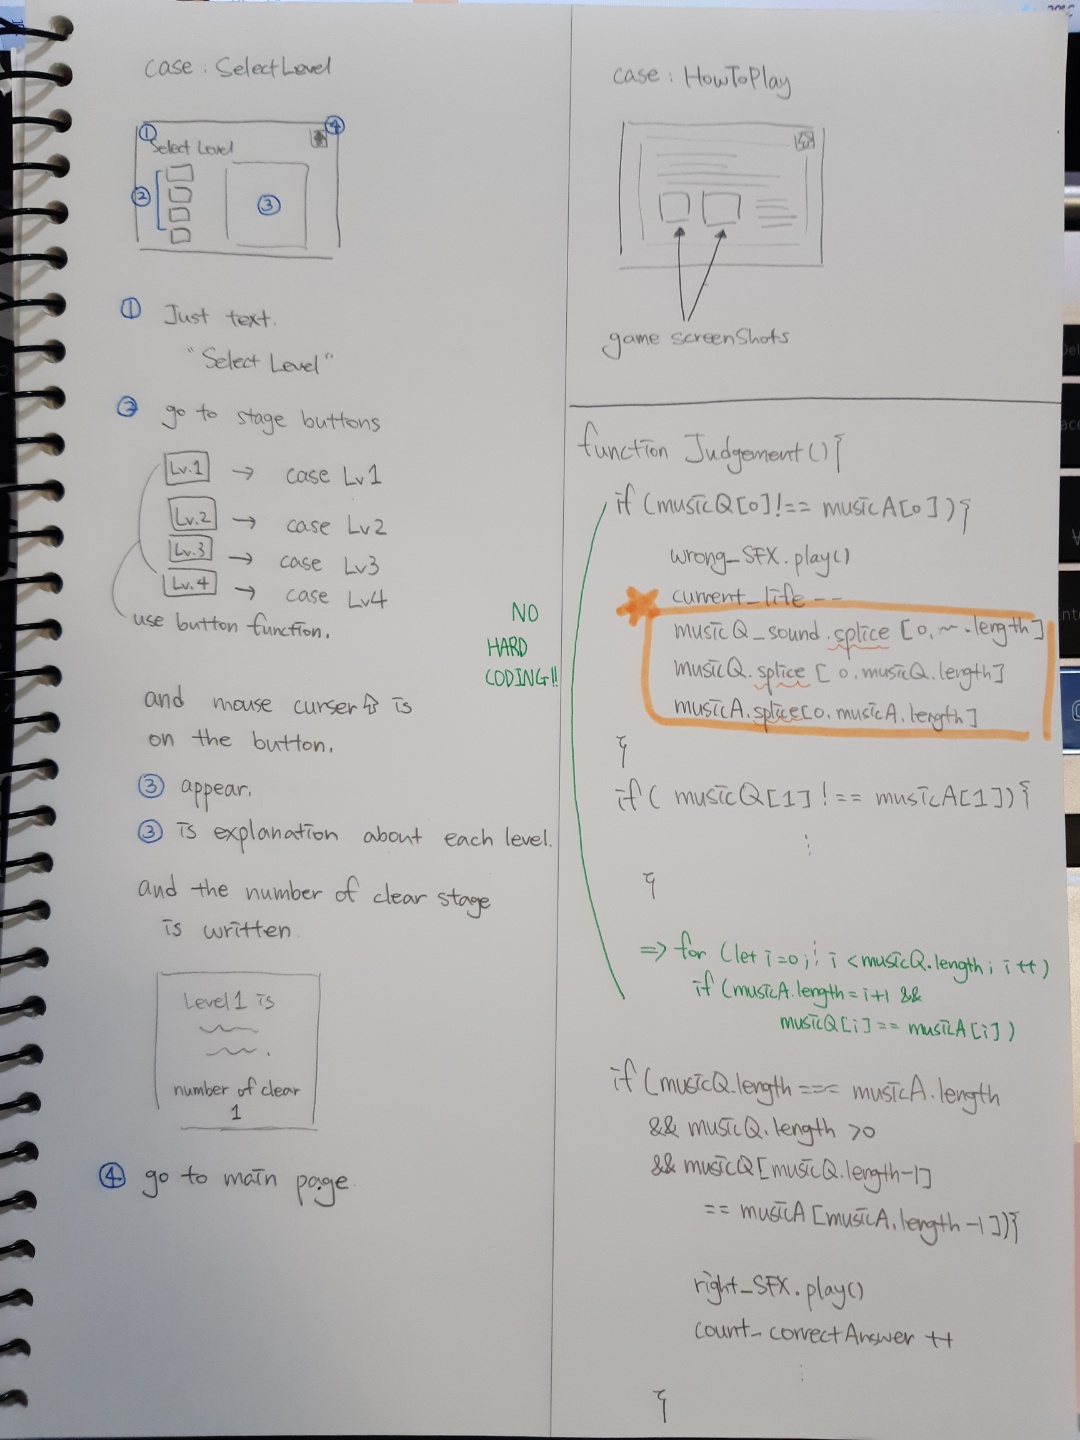 case : SelectLevel
①
④
Select Level
②
③
① Just text.
"Select Level"
② go to stage buttons
Lv.1 → case Lv1
Lv.2 → case Lv2
Lv.3 → case Lv3
Lv.4 → case Lv4
use button function.
and mouse curser is
on the button.
③ appear.
③ is explanation about each level.
and the number of clear stage
is written
Level 1 is
number of clear
1
④ go to main page.
case : HowToPlay
game screenShots
function Judgement(){
if (musicQ[0]!== musicA[0]){
wrong_SFX.play()
current_life --
musicQ_sound.splice [0, ~.length]
musicQ.splice [ 0. musicQ.length]
musicA.splice[0. musicA.length]
}
NO
HARD
CODING!!
if( musicQ[1] !== musicA[1]){
⋮
}
=> for (let i=0; i <musicQ.length; i ++)
if (musicA.length = i+1 &&
musicQ[i] == musicA[i])
if (musicQ.length === musicA.length
&& musicQ.length >0
&& musicQ[musicQ.length-1]
== musicA[musicA.length -1]){
right_SFX.play()
count_correctAnswer ++
⋮
}